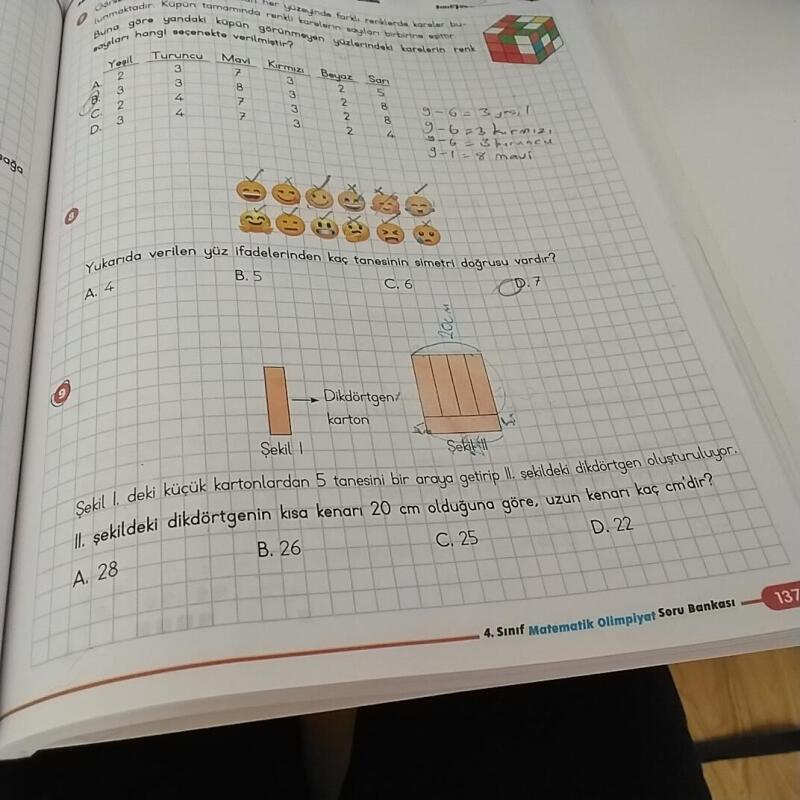 her yüzeynde farklı renklerde kareler bu-
lunmaktadır. Küpün tamamında renkli karelerin sayıları birbirine eşittir.
Buna göre yandaki küpün görünmeyen yüzlerindeki karelerin renk
sayıları hangi seçenekte verilmiştir?
Yeşil Turuncu Mavi Kırmızı Beyaz Sarı
A. 2 3 7 3 2 5
B. 3 3 8 3 2 8
C. 2 4 7 3 2 8
D. 3 4 7 3 2 4
9-6=3 yeşil
9-6=3 kırmızı
9-6=3 turuncu
9-1=8 mavi
8
Yukarıda verilen yüz ifadelerinden kaç tanesinin simetri doğrusu vardır?
A. 4 B. 5 C. 6 D. 7
20cm
9
Dikdörtgen
karton
Şekil I
Şekil II
Şekil I. deki küçük kartonlardan 5 tanesini bir araya getirip II. şekildeki dikdörtgen oluşturuluyor.
II. şekildeki dikdörtgenin kısa kenarı 20 cm olduğuna göre, uzun kenarı kaç cm'dir?
A. 28 B. 26 C. 25 D. 22
4. Sınıf Matematik Olimpiyat Soru Bankası 137